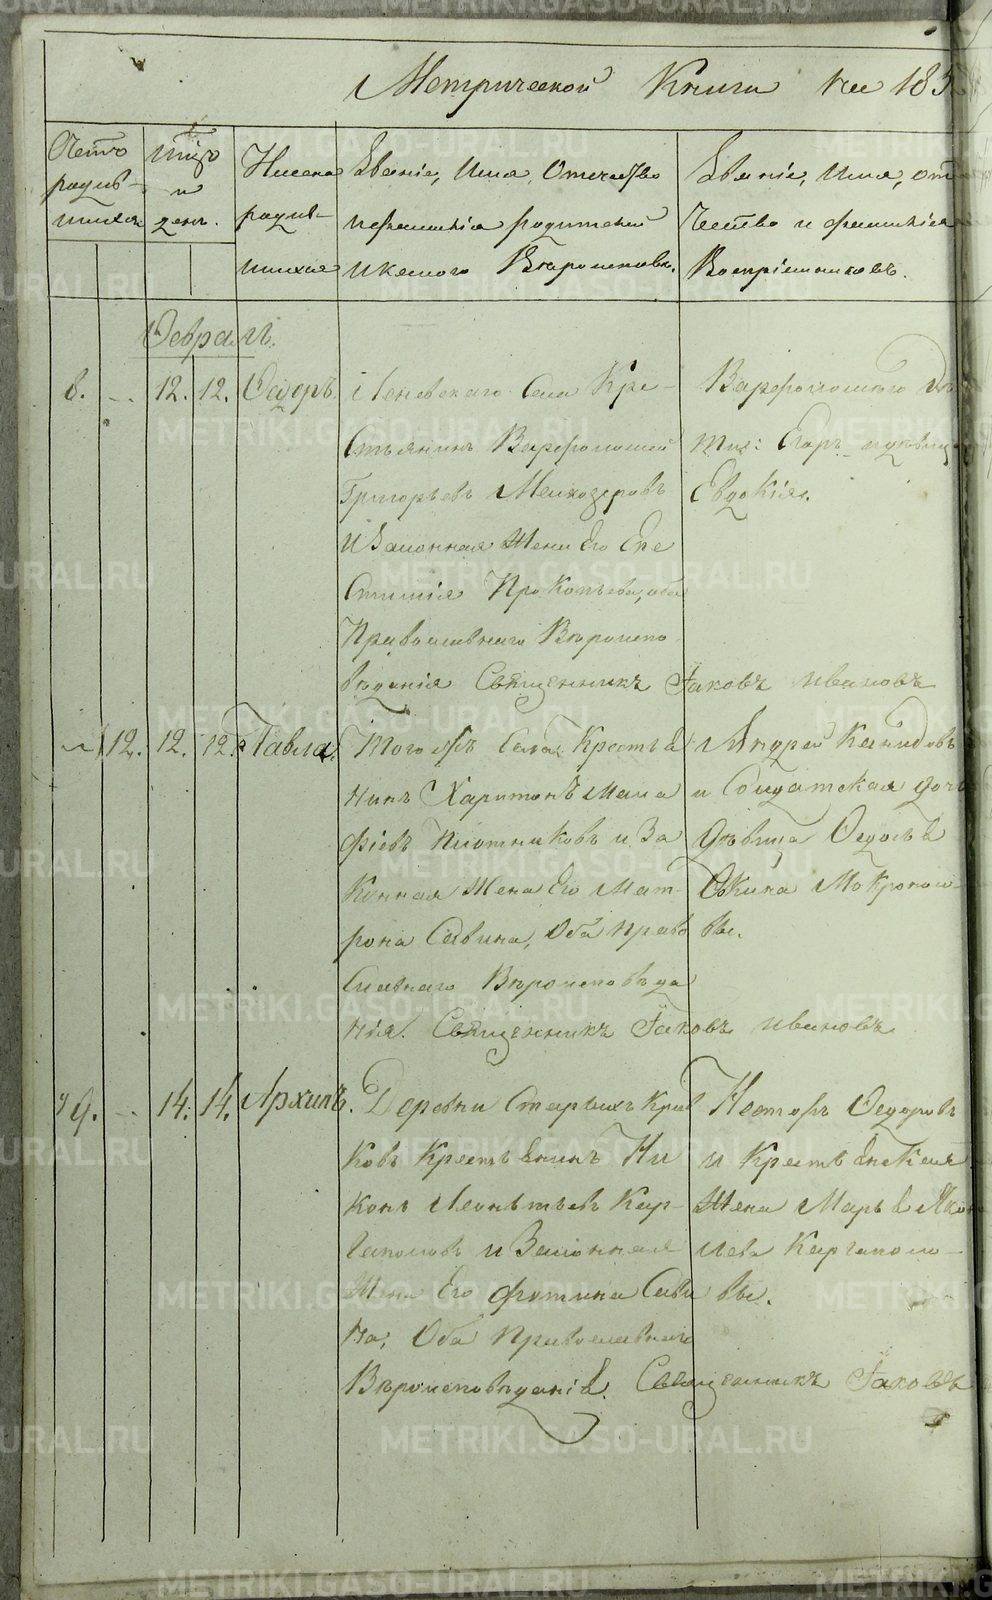 Метрической Книги на 185
Щетъ родив-шихся
Мѣсцъ и день.
Имена родив-шихся
Званіе, Имя, Отечество
и фамилія родителей
и какого Вѣроисповѣд.
Званіе, Имя, отечество и фамилія
Воспріемниковъ.
Февраль.
8. 12. 12. Ѳедоръ.
Леневскаго Села Кре-
стьянинъ Варфоломей
Григорьевъ Мелкозеровъ
и Законная Жена Его Епе
стимія Прокопьева, оба
Православнаго Вѣроиспо
вѣданія Священникъ Іаковъ Ивановъ
Варфоломеего
Егоръ дѣвица
Евдокія.
12. 12. 12. Павла.
Того жъ Села Крестья
нинъ Харитонъ Мала
фіевъ Плотниковъ и За
конная Жена Его Мат-
рона Савина, Оба Право
славнаго Вѣроисповѣда
нія. Священникъ Іаковъ Ивановъ
Андрей
и Солдатская дочь
дѣвица Ѳедосья
Ѳокина Мокроносо-
вы.
9. 14. 14. Архипъ.
Деревни Старыхъ Крив
ковъ Крестьянинъ Ни
конъ Леонтьевъ Кар-
гаполовъ и Законная
Жена Его Фотина Савви
на, Оба Православнаго
Вѣроисповѣданія. Священникъ Іаковъ
Несторъ Ѳедоровъ
и Крестьянская
Жена Марья Яков
лева Каргаполо-
вы.
METRIKI.GASO-URAL.RU